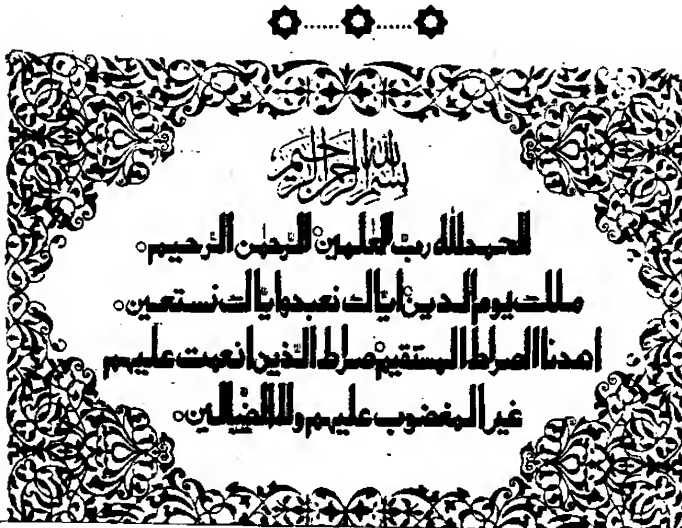 بسم الله الرحمن الرحيم
الحمد لله رب العلمين الرحمن الرحيم
ملك يوم الدين اياك نعبد و اياك نستعين
اهدنا الصراط المستقيم صراط الذين انعمت عليهم
غير المغضوب عليهم ولا الضالين